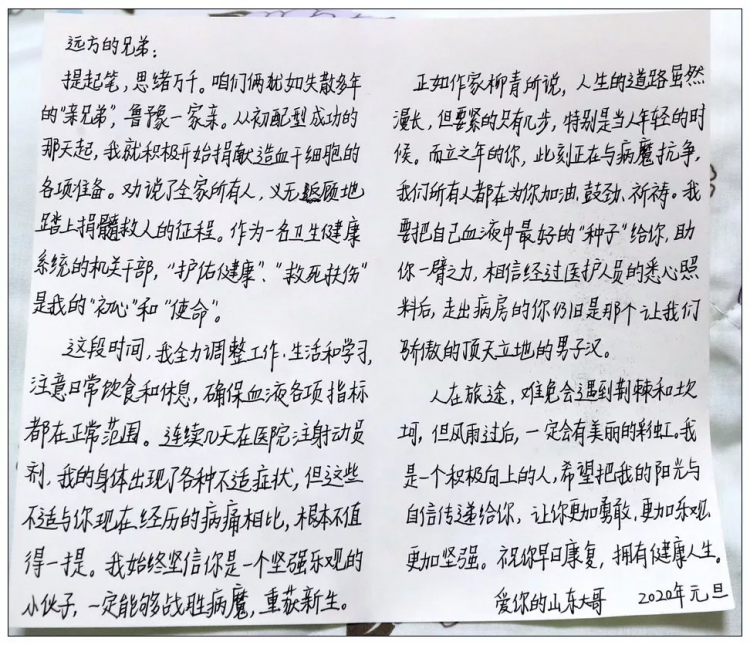 远方的兄弟:
提起笔,思绪万千。咱们俩就如失散多年
的“亲兄弟”,鲁豫一家亲。从初配型成功的
那天起,我就积极开始捐献造血干细胞的
各项准备。劝说了全家所有人,义无返顾地
踏上捐髓救人的征程。作为一名卫生健康
系统的机关干部,“护佑健康”、“救死扶伤”
是我的“初心”和“使命”。
这段时间,我全力调整工作、生活和学习,
注意日常饮食和休息,确保血液各项指标
都在正常范围。连续几天在医院注射动员
剂,我的身体出现了各种不适症状,但这些
不适与你现在经历的病痛相比,根本不值
得一提。我始终坚信你是一个坚强乐观的
小伙子,一定能够战胜病魔,重获新生。
正如作家柳青所说,人生的道路虽然
漫长,但要紧的只有几步,特别是当人年轻的时
候。而立之年的你,此刻正在与病魔抗争,
我们所有人都在为你加油、鼓劲、祈祷。我
要把自己血液中最好的“种子”给你,助
你一臂之力,相信经过医护人员的悉心照
料后,走出病房的你仍旧是那个让我们
骄傲的顶天立地的男子汉。
人在旅途,难免会遇到荆棘和坎
坷,但风雨过后,一定会有美丽的彩虹。我
是一个积极向上的人,希望把我的阳光与
自信传递给你,让你更加勇敢、更加乐观、
更加坚强。祝你早日康复,拥有健康人生。
爱你的山东大哥 2020年元旦